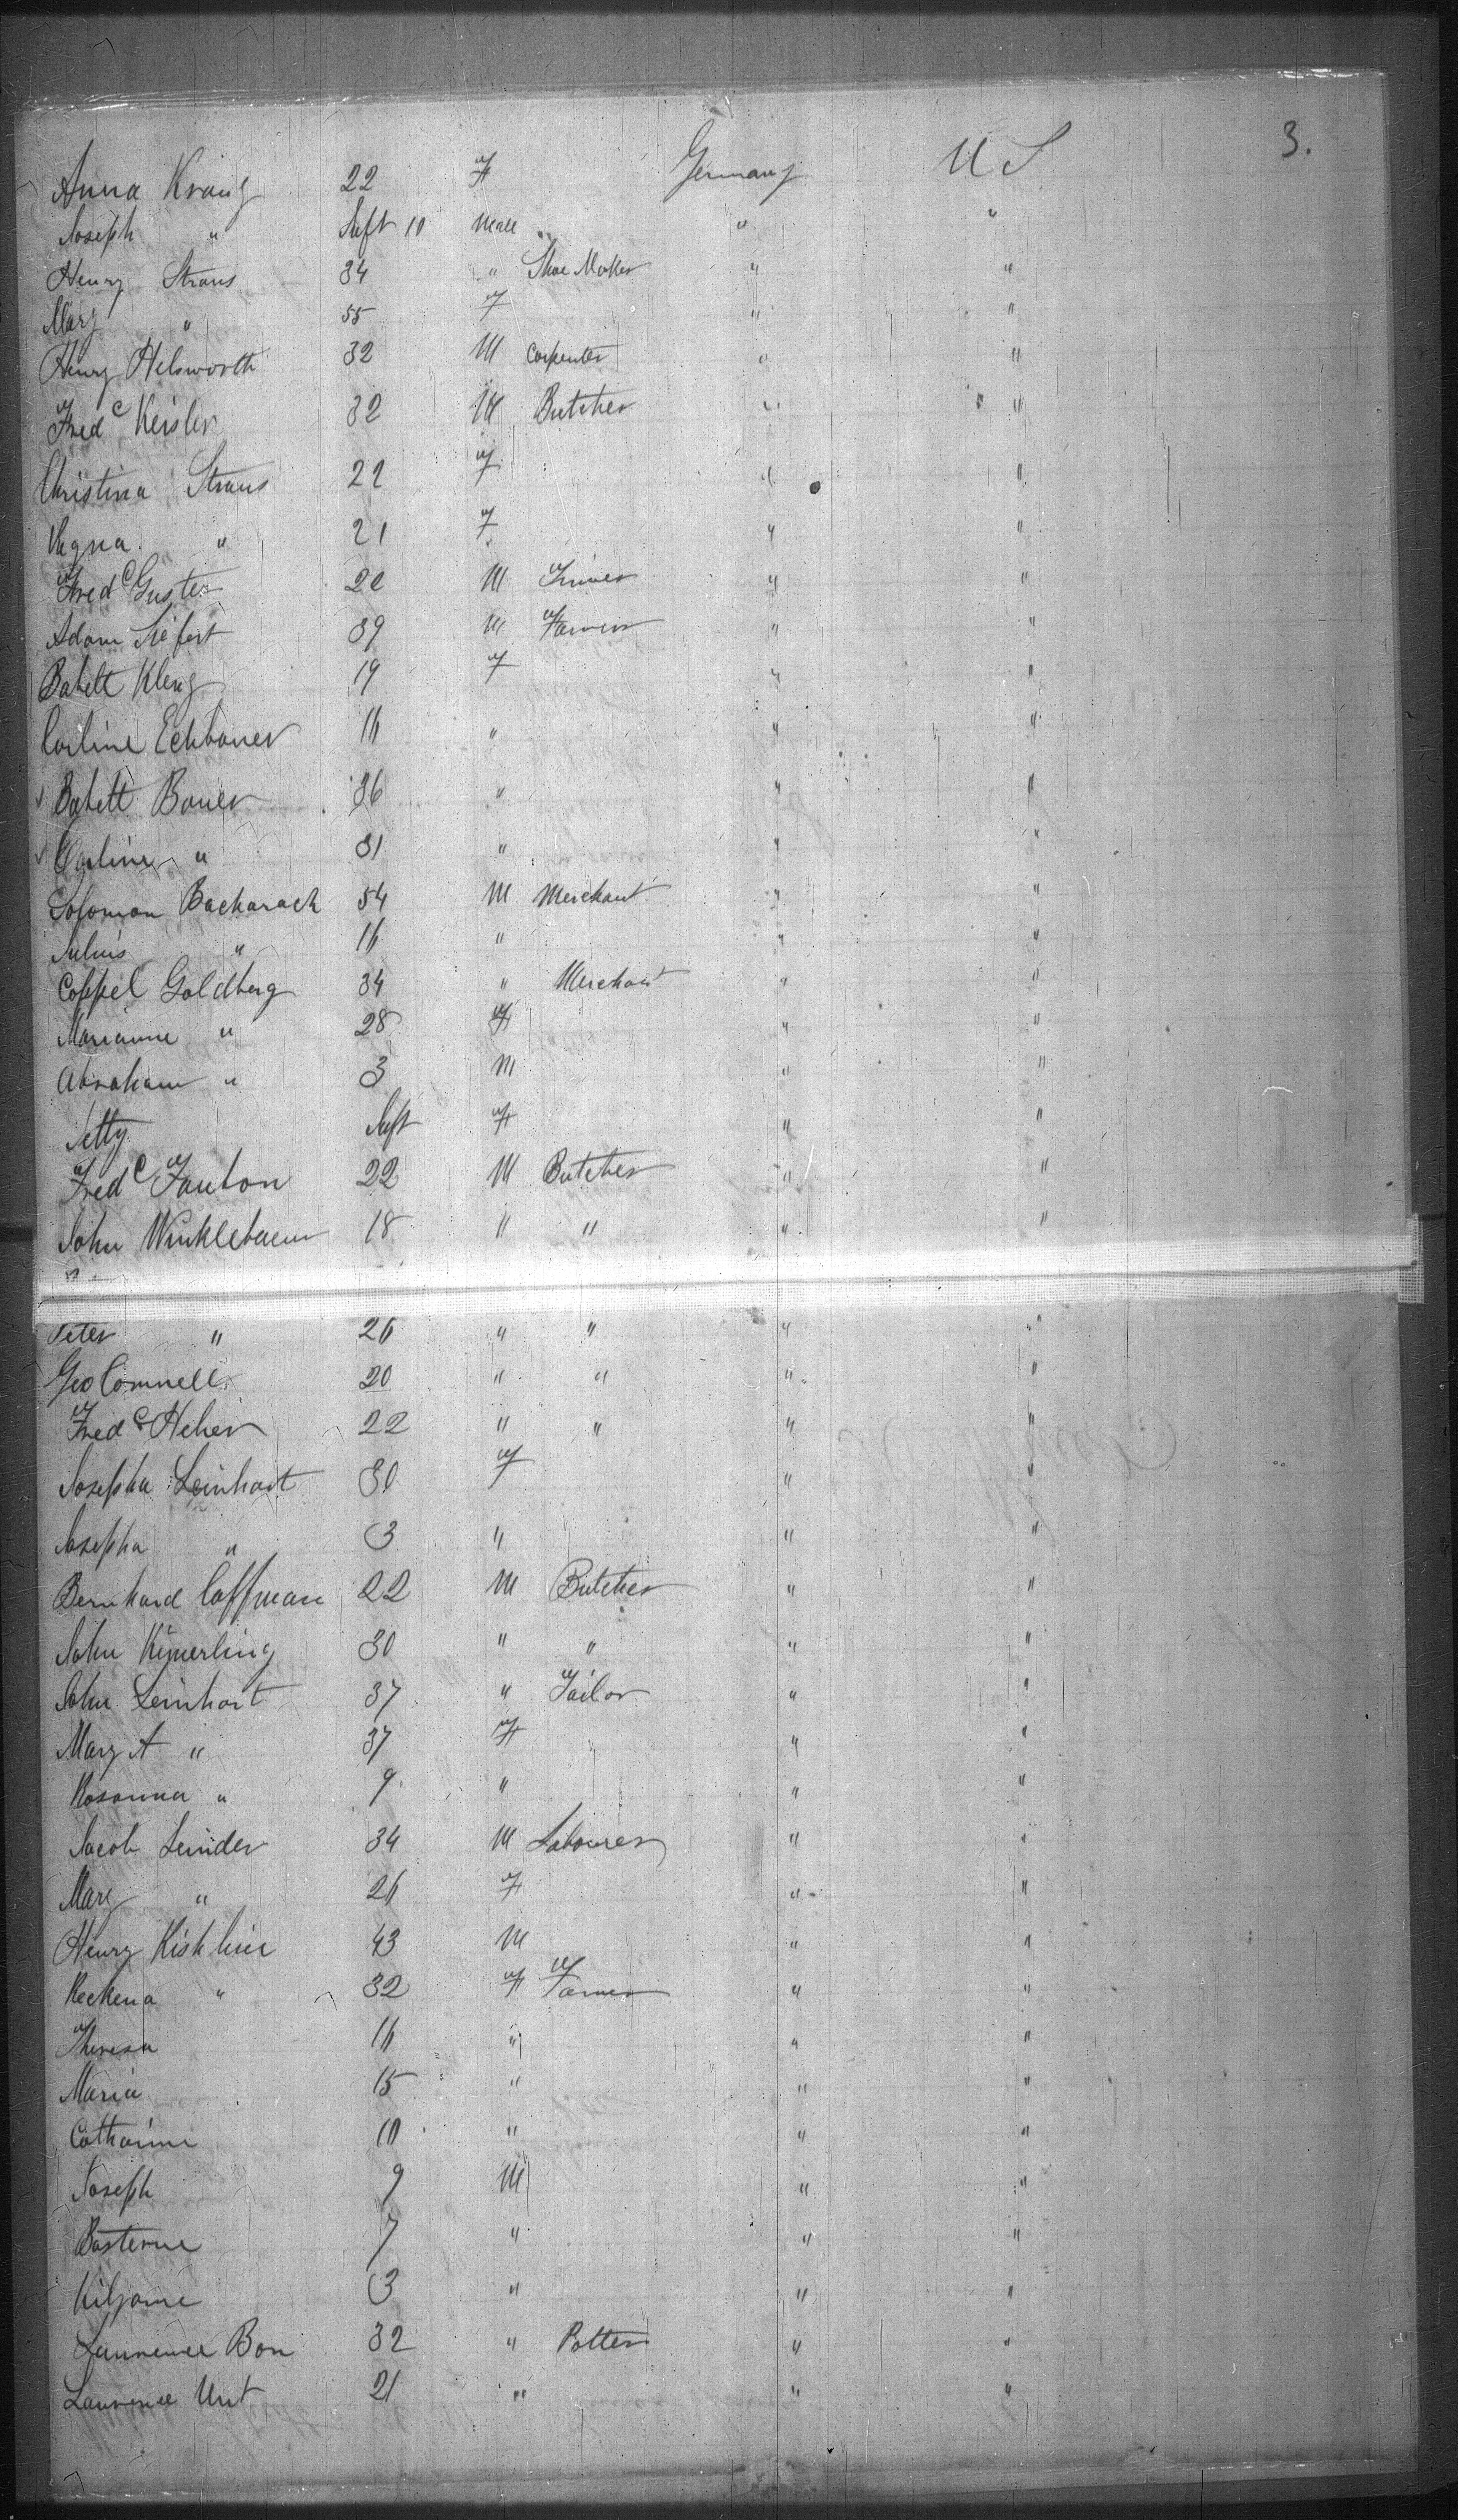 3.
Anna Kraug 22 F Germany U S
Joseph " Inft 10 Male " " "
Henry Straus 34 " Shoe Maker " "
Mary " 55 F " "
Henry Helsworth 32 M Carpenter " "
Fredc Keisler 32 M Butcher " "
Christina Straus 22 F " "
" 21 F " "
Fredc Guster 22 M " "
Adam Siefert 39 M Farmer " "
Babett Kleng 19 F " "
Carline Echbauer 16 " " "
Babett Bauer 36 " " "
Carline " 31 " " "
Solomon Bacharach 54 M Merchant " "
Julius " 16 " " "
Coppel Goldberg 34 " Merchant " "
Marianne " 28 F " "
Abraham " 3 M " "
Jetty Inft F " "
Fredc Fauton 22 M Butcher " "
John Winklebaum 18 " " " "
Peter " 26 " " " "
Geo Comnell 20 " " " "
Fredc Heher 22 " " " "
Josepha Leinhart 30 F " "
Josepha " 3 " " "
Bernhard Coffman 22 M Butcher " "
John Kymerling 30 " " " "
John Leinhart 37 " Tailor " "
Mary A " 37 F " "
Rosanna " 9 " " "
Jacob Leinder 34 M Labourer " "
Mary " 26 F " "
Henry Kishline 43 M " "
" 32 F Farmer " "
Theresa 16 " " "
Maria 15 " " "
Catharine 10 " " "
Joseph 9 M " "
7 " " "
3 " " "
Laurence Bon 32 " Potter " "
Laurence Unt 21 " " "